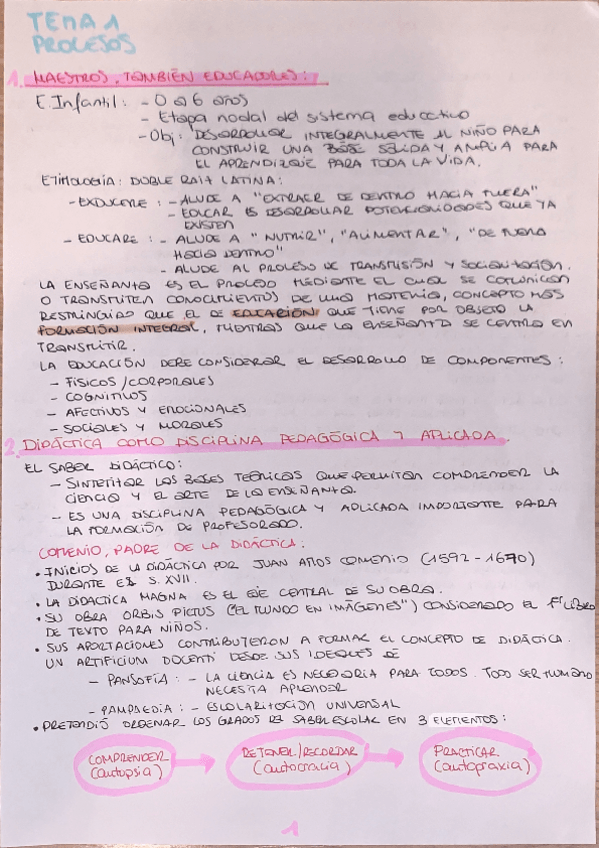 TEMA 1
PROCESOS
1. MAESTROS, TAMBIÉN EDUCADORES:
E. Infantil: - 0 a 6 años
- Etapa nodal del sistema educativo
- Obj: DESARROLLAR INTEGRALMENTE AL NIÑO PARA
CONSTRUIR UNA BASE SÓLIDA Y AMPLIA PARA
EL APRENDIZAJE PARA TODA LA VIDA.
ETIMOLOGÍA: DOBLE RAÍZ LATINA:
- EXDUCERE: - ALUDE A "EXTRAER DE DENTRO HACIA FUERA"
- EDUCAR ES DESARROLLAR POTENCIALIDADES QUE YA
EXISTEN
- EDUCARE: - ALUDE A "NUTRIR", "ALIMENTAR", "DE FUERA
HACIA DENTRO"
- ALUDE AL PROCESO DE TRANSMISIÓN Y SOCIALIZACIÓN.
LA ENSEÑANZA ES EL PROCESO MEDIANTE EL CUAL SE COMUNICAN
O TRANSMITEN CONOCIMIENTOS DE UNA MATERIA, CONCEPTO MÁS
RESTRINGIDO QUE EL DE EDUCACIÓN QUE TIENE POR OBJETO LA
FORMACIÓN INTEGRAL, MIENTRAS QUE LA ENSEÑANZA SE CENTRA EN
TRANSMITIR.
LA EDUCACIÓN DEBE CONSIDERAR EL DESARROLLO DE COMPONENTES:
- FÍSICOS/CORPORALES
- COGNITIVOS
- AFECTIVOS Y EMOCIONALES
- SOCIALES Y MORALES
2. DIDÁCTICA COMO DISCIPLINA PEDAGÓGICA Y APLICADA.
EL SABER DIDÁCTICO:
- SINTETIZAR LAS BASES TEÓRICAS QUE PERMITAN COMPRENDER LA
CIENCIA Y EL ARTE DE LA ENSEÑANZA.
- ES UNA DISCIPLINA PEDAGÓGICA Y APLICADA IMPORTANTE PARA
LA FORMACIÓN DE PROFESORADO.
COMENIO, PADRE DE LA DIDÁCTICA.
• INICIOS DE LA DIDÁCTICA POR JUAN AMOS COMENIO (1592-1670)
DURANTE EL S. XVII.
• LA DIDACTICA MAGNA ES EL EJE CENTRAL DE SU OBRA.
• SU OBRA ORBIS PICTUS ("EL MUNDO EN IMÁGENES") CONSIDERADO EL 1er LIBRO
DE TEXTO PARA NIÑOS.
• SUS APORTACIONES CONTRIBUYERON A FORMAR EL CONCEPTO DE DIDÁCTICA.
UN ARTIFICIUM DOCENTI DESDE SUS IDEALES DE
- PANSOFÍA: - LA CIENCIA ES NECESARIA PARA TODOS. TODO SER HUMANO
NECESITA APRENDER
- PAMPAEDIA: - ESCOLARIZACIÓN UNIVERSAL
• PRETENDIÓ ORDENAR LOS GRADOS DEL SABER ESCOLAR EN 3 ELEMENTOS:
COMPRENDER (autopsia) → RETENER/RECORDAR (autocracia) → PRACTICAR (autopraxia)
1